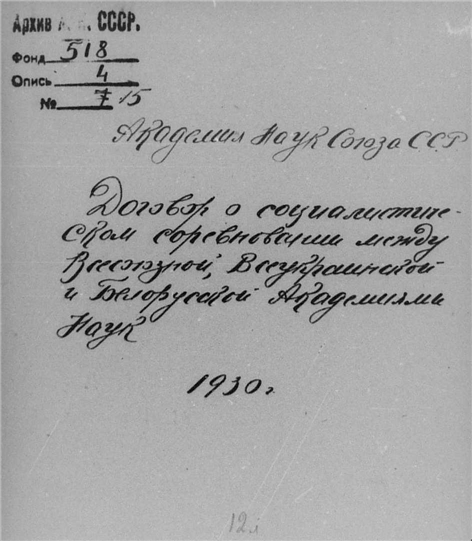 Архив А. Н. СССР.
Фонд 518
Опись 4
№ 715
Академия Наук Союза ССР
Договор о социалистиче-
ском соревновании между
Всесоюзной, Всеукраинской
и Белорусской Академиями
Наук
1930 г.
12 л